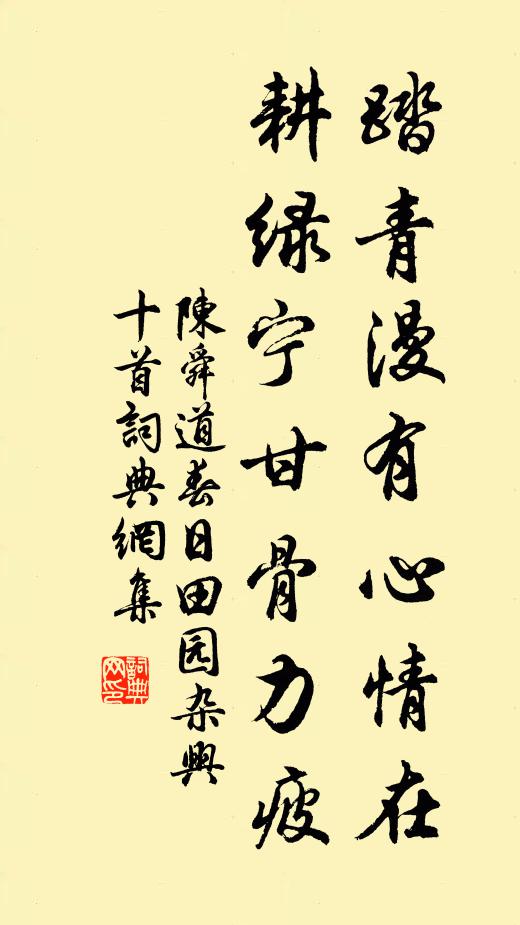 踏青漫有心情在
耕绿宁甘骨力疲
陳舜道春日田园杂興
十首詞典網集
詞典网印